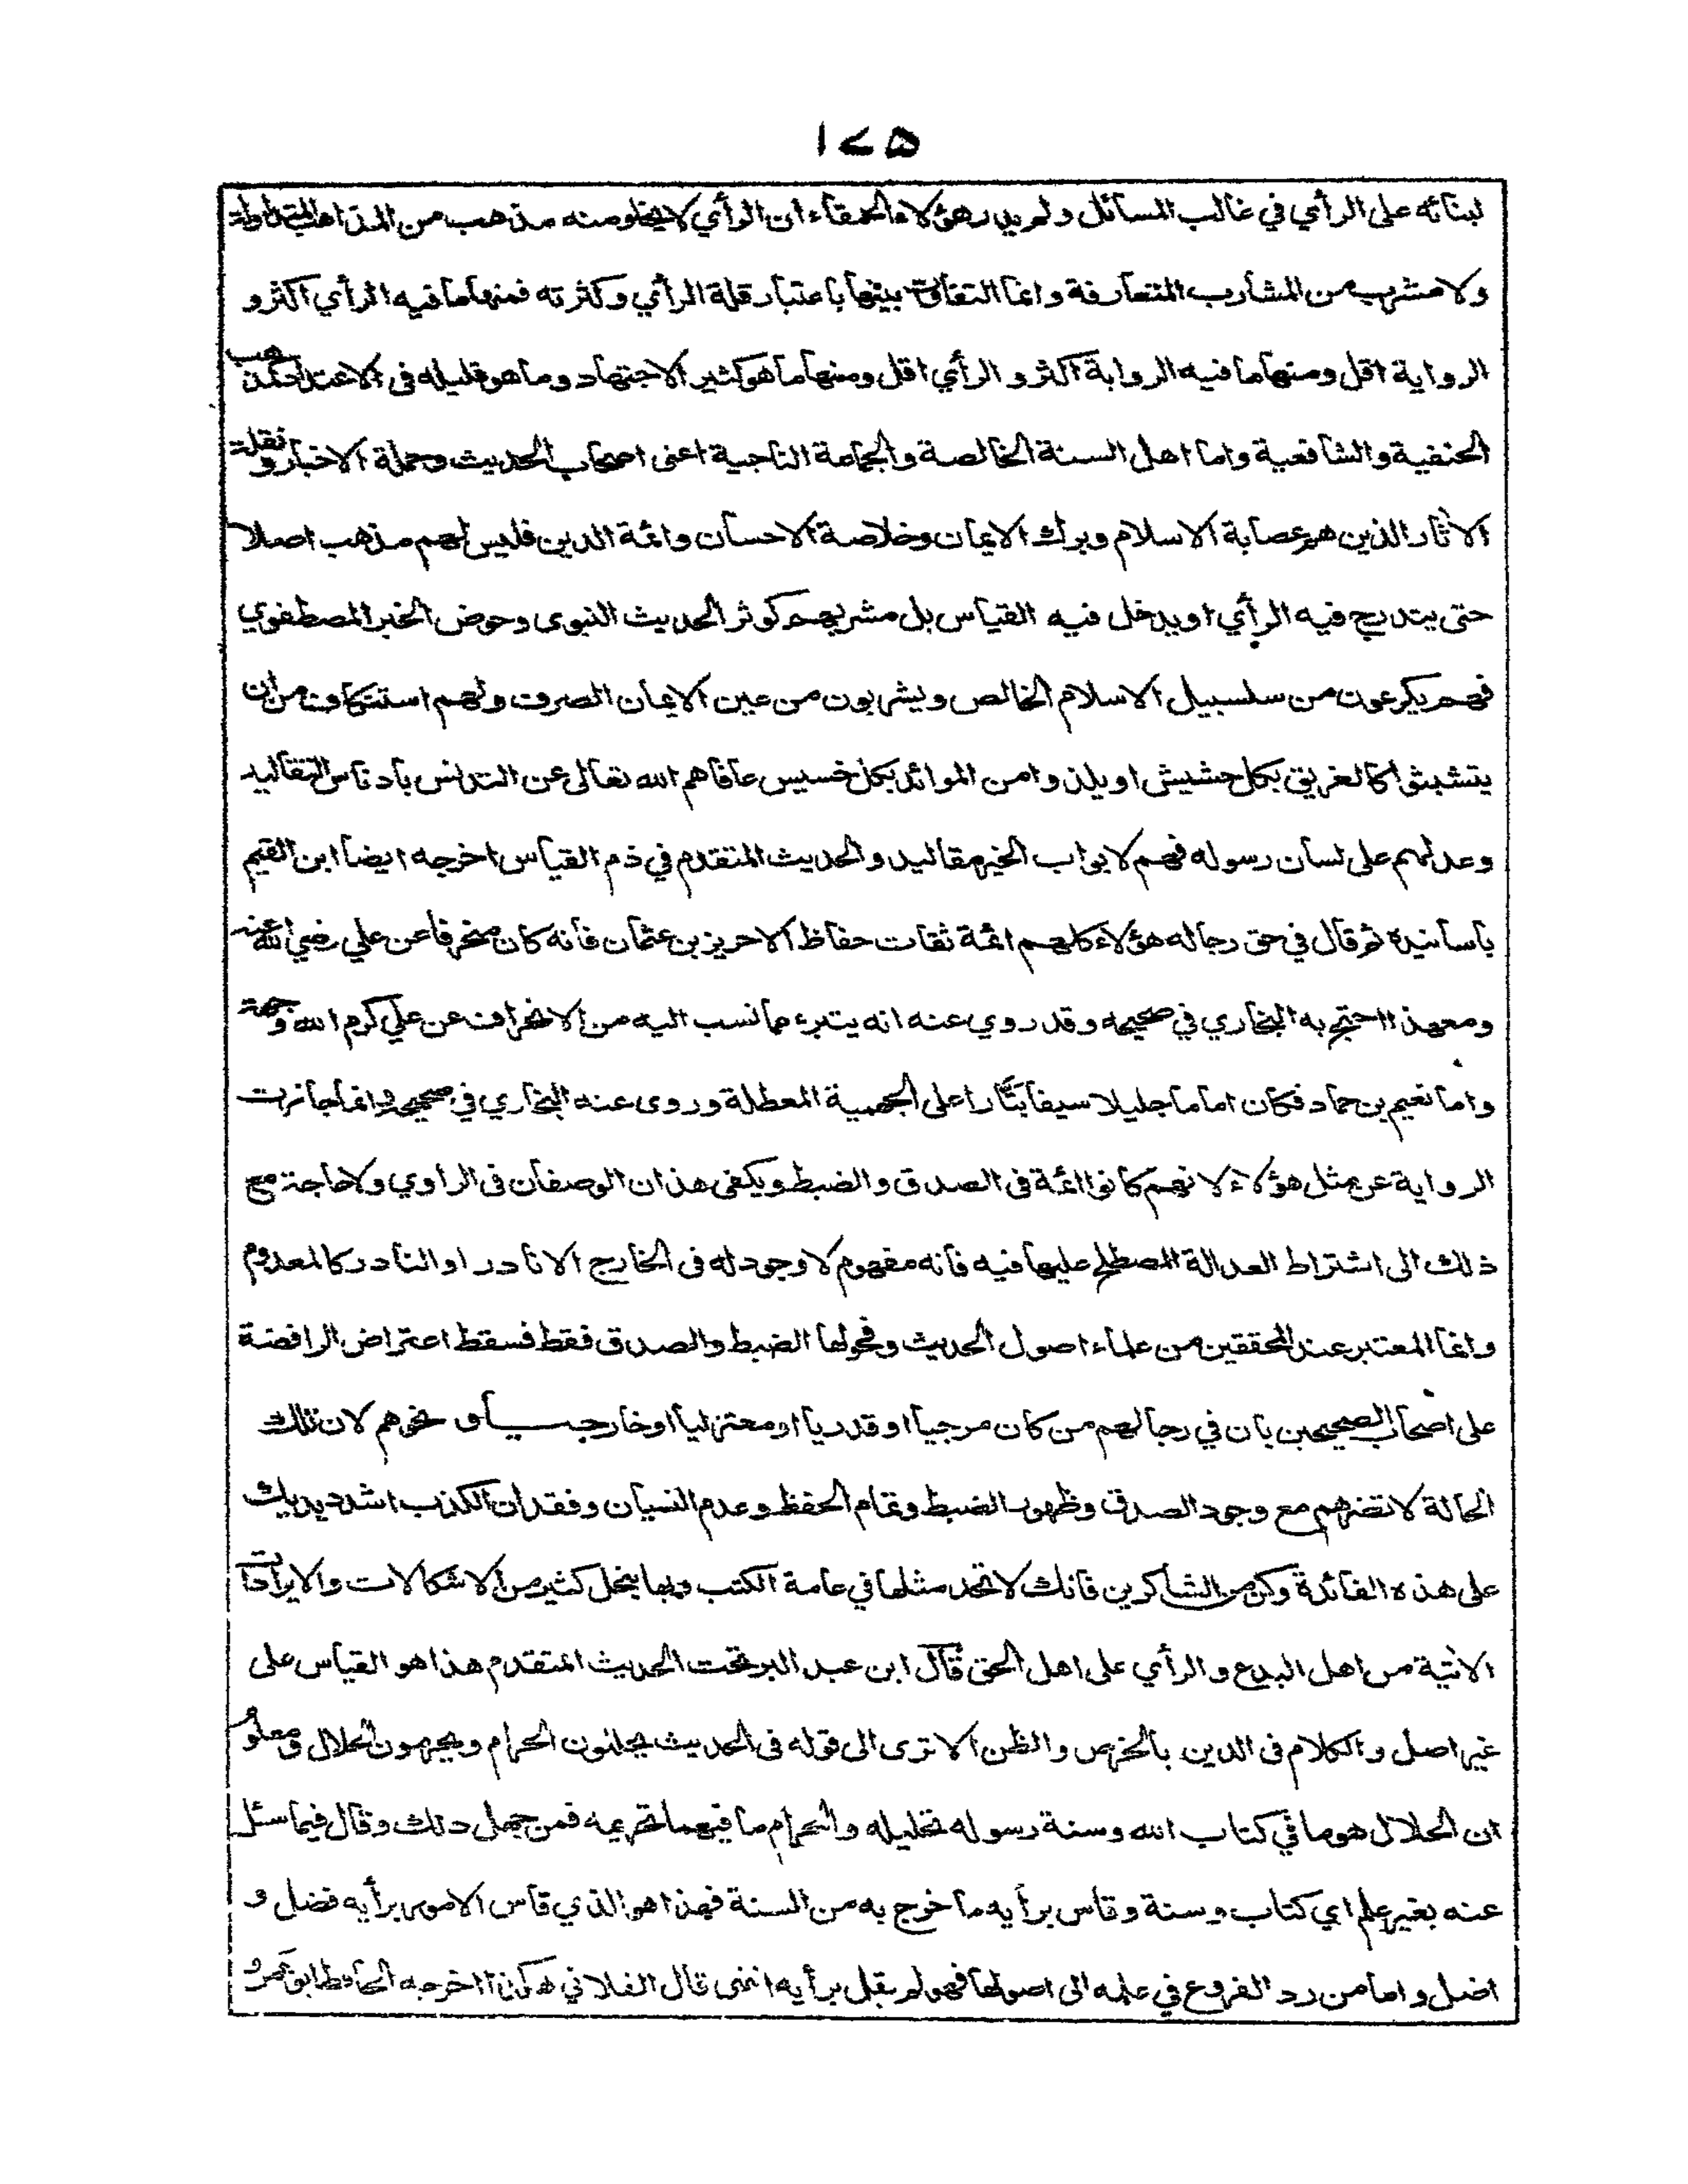 ١٧٥
لبنائه على الرأي في غالب المسائل ولم يدر هؤلاء الحمقاء ان الرأي لا يخلو منه مذهب من المذاهب
ولا مشرب من المشارب المتعارفة وانما التفاوت بينها باعتبار قلة الرأي وكثرته فمنها ما فيه الرأي اكثر و
الرواية اقل ومنها ما فيه الرواية اكثر و الرأي اقل ومنها ما هو كثير الاجتهاد وما هو قليله فى الاعتداد كمذهب
الحنفية والشافعية واما اهل السنة الخالصة والجماعة الناجية اعنى اصحاب الحديث وحملة الاخبار ونقلة
الاثار الذين هم عصابة الاسلام وبرك الايمان وخلاصة الاحسان وائمة الدين فليس لهم مذهب اصلا
حتى يندرج فيه الرأي او يدخل فيه القياس بل مشربهم كوثر الحديث النبوى وحوض الخبر المصطفوي
فهم يكرعون من سلسبيل الاسلام الخالص ويشربون من عين الايمان الصرف ولهم استنكاف من ان
يتشبثوا كالغريق بكل حشيش او يلذوا من الموائد بكل خسيس عافاهم الله تعالى عن التدنس بادناس التقاليد
وعدلهم على لسان رسوله فهم لابواب الخير مقاليد والحديث المتقدم في ذم القياس اخرجه ايضا ابن القيم
باسانيده ثم قال في حق رجاله هؤلاء كلهم ائمة ثقات حفاظ الا حريز بن عثمان فانه كان منحرفا عن علي رضي الله عنه
ومع هذا احتج به البخاري في صحيحه وقد روي عنه انه يتبرء مما نسب اليه من الانحراف عن علي كرم الله وجهه
واما نعيم بن حماد فكان اماما جليلا سيفا بتّارا على الجهمية المعطلة وروى عنه البخاري في صحيحه وانما جازت
الرواية عن مثل هؤلاء لانهم كانوا ائمة فى الصدق والضبط ويكفى هذان الوصفان فى الراوي ولا حاجة مع
ذلك الى اشتراط العدالة المصطلح عليها فيه فانه مفهوم لا وجود له فى الخارج الا نادرا والنادر كالمعدوم
وانما المعتبر عند المحققين من علماء اصول الحديث وفحولها الضبط والصدق فقط فسقط اعتراض الرافضة
على اصحاب الصحيحين بان في رجالهم من كان مرجيا او قدريا او معتزليا او خارجيا او نحوهم لان تلك
الحالة لا تضرهم مع وجود الصدق وظهور الضبط وتمام الحفظ وعدم النسيان وفقدان الكذب اشدد يديك
على هذه الفائدة وكن من الشاكرين فانك لا تجد مثلها في عامة الكتب وبها ينحل كثير من الاشكالات والايرادات
الاتية من اهل البدع والرأي على اهل الحق قال ابن عبد البر تحت الحديث المتقدم هذا هو القياس على
غير اصل والكلام فى الدين بالخرص والظن الا ترى الى قوله فى الحديث يحلون الحرام ويحرمون الحلال ومعلوم
ان الحلال هو ما في كتاب الله وسنة رسوله تحليله والحرام ما فيهما تحريمه فمن جهل ذلك وقال فيما سئل
عنه بغير علم اي كتاب وسنة وقاس برأيه ما خرج به من السنة فهذا هو الذي قاس الامور برأيه فضل و
اضل واما من رد الفروع في علمه الى اصولها فهو لم يقل برأيه انتهى قال الفلاني هكذا اخرجه الحافظ ابو عمرو